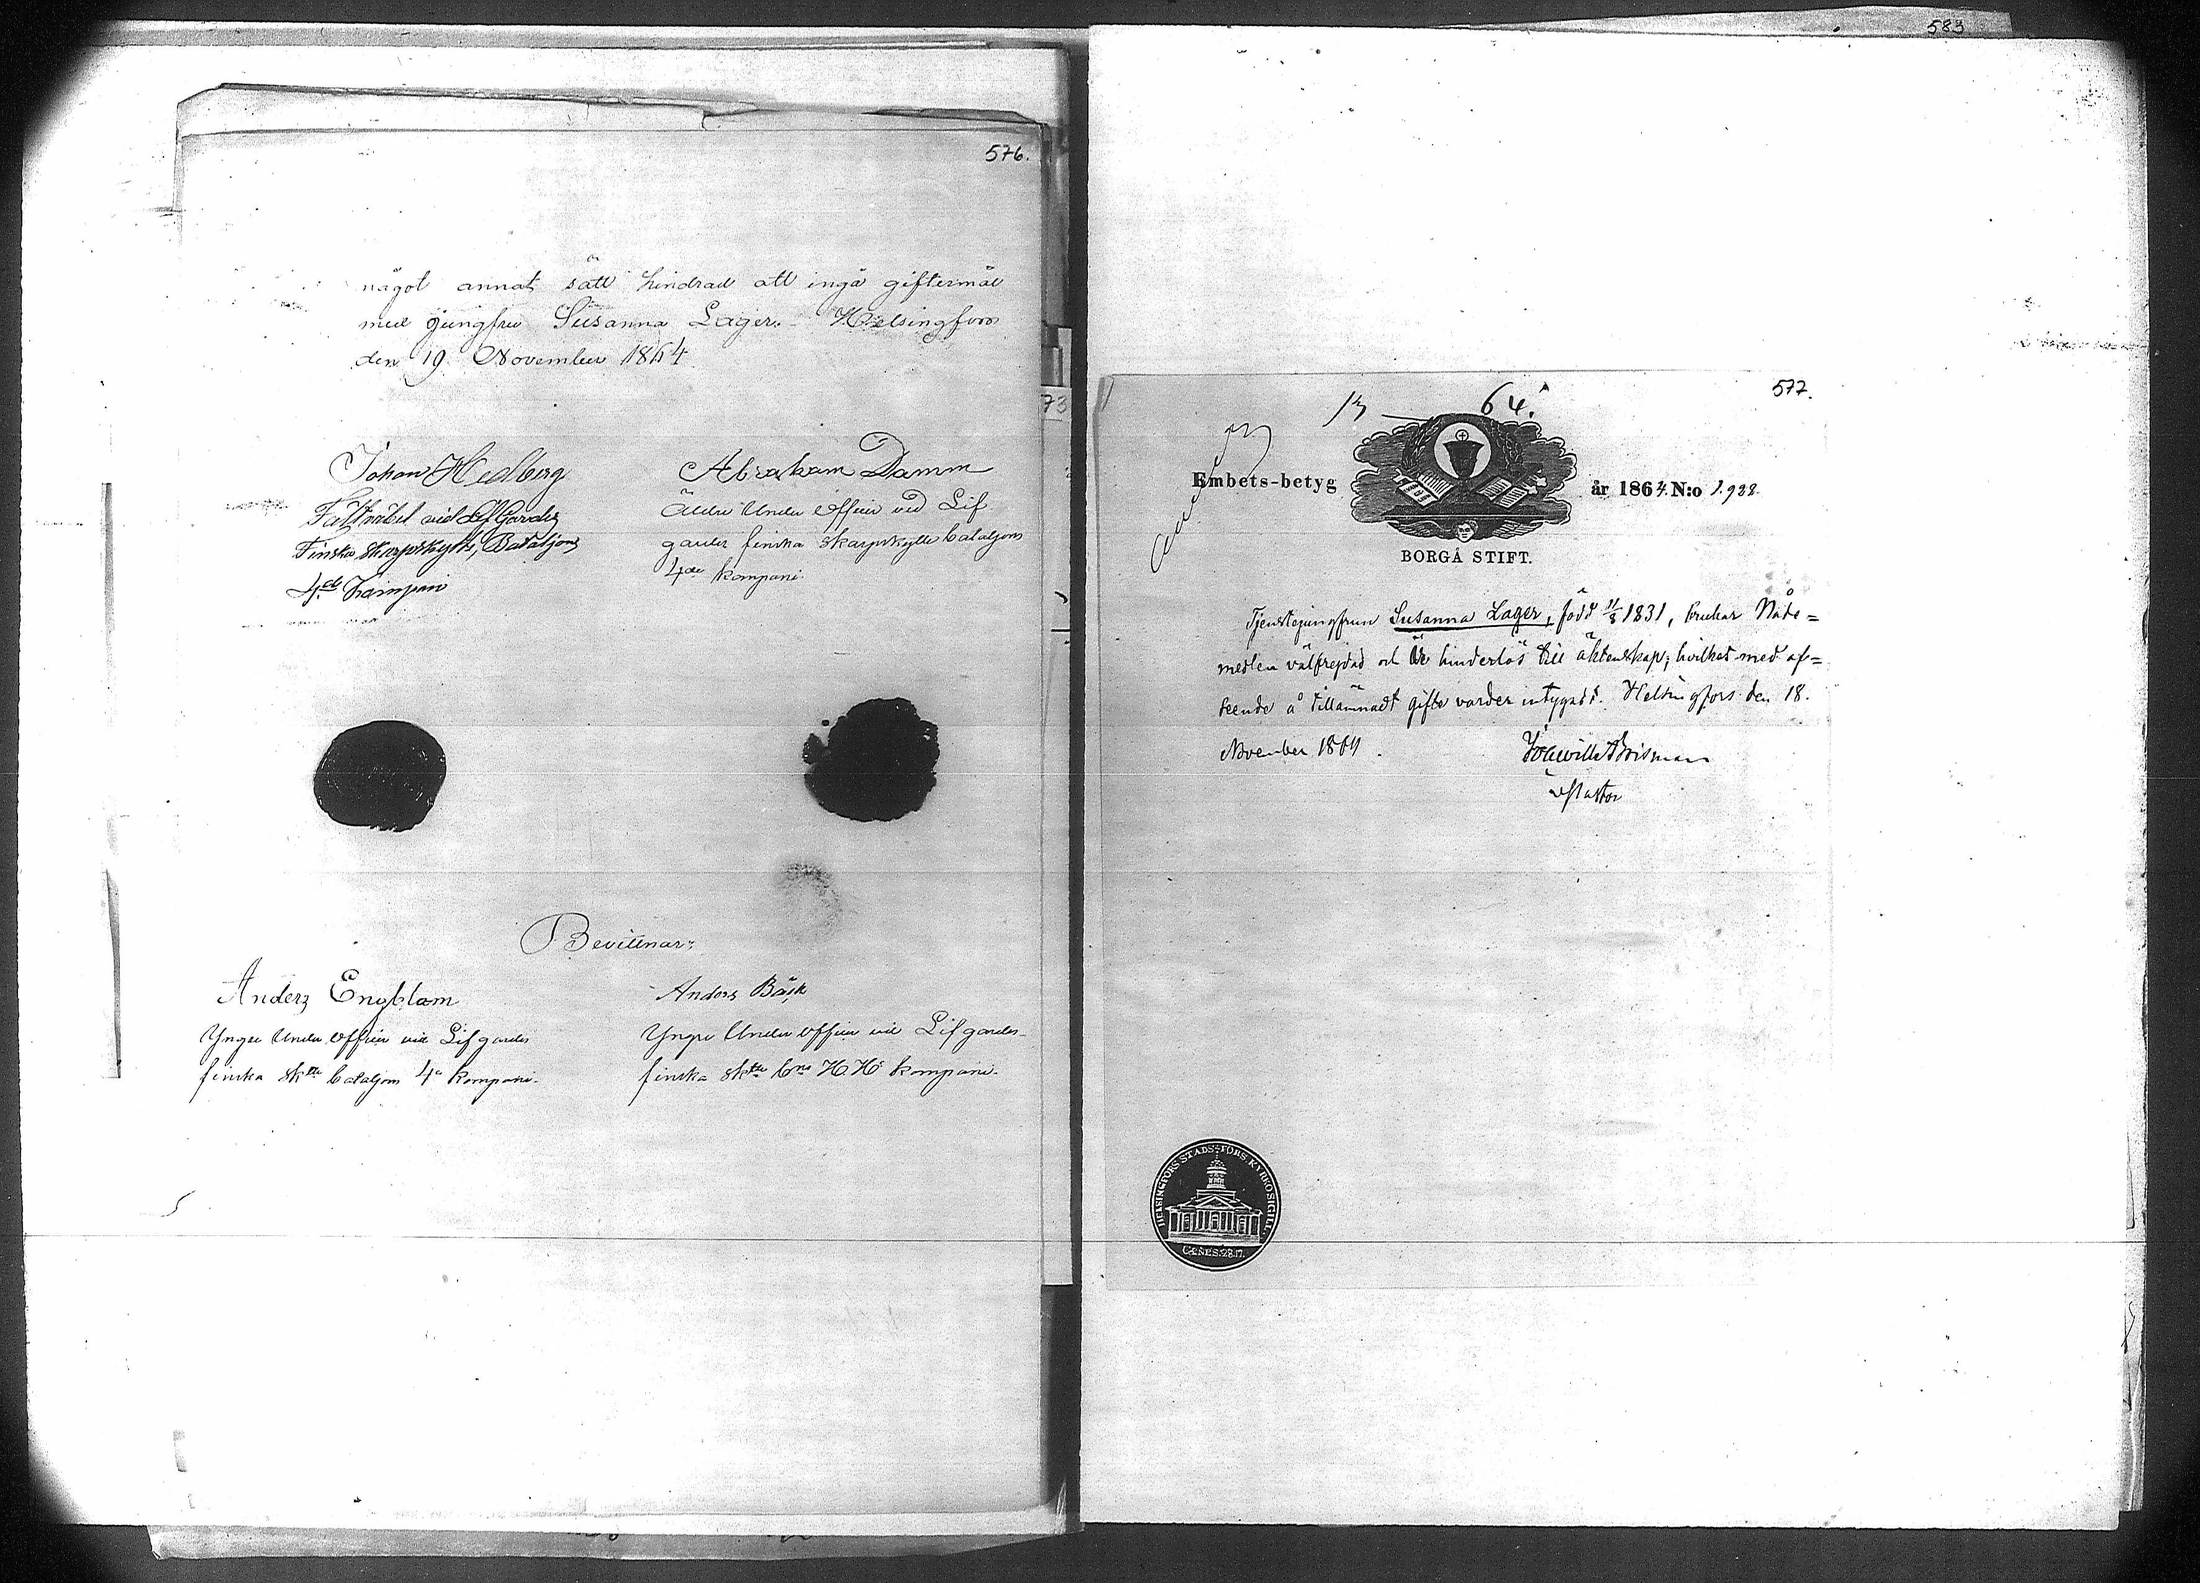 583
576.
något annat sätt hindrad att ingå giftermål
med jungfru Susanna Lager. Helsingfors
den 19 November 1864
Johan Hedberg
Fältväbel vid Lif Gardes
Finska Skarpskytte, Bataljons
4de Kompani
Abraham Damm
Äldre Under Officer vid Lif
gardes finska skarpskytte bataljons
4de kompani.
Bevittnar:
Anders Engblom
Yngre Under officer vid Lifgardes
finska sktte bataljons 4e kompani.
Anders Bäck
Yngre Under officer vid Lifgardes
finska sktte bns H.H.s kompani.
73
577.
13 — 64.
Embets-betyg
år 1864. N:o 1.988.
BORGÅ STIFT.
Tjenstejungfrun Susanna Lager, född 11/8 1831, brukar Nåde=
medlen välfrejdad och är hinderlös till äktenskap; hvilket med af=
seende å tillämnadt gifte varder intygadt. Helsingfors den 18.
November 1864.
v Pastor
HELSINGFORS STADS-FÖRS KYRKOSIGILL
GENES. 28.17.